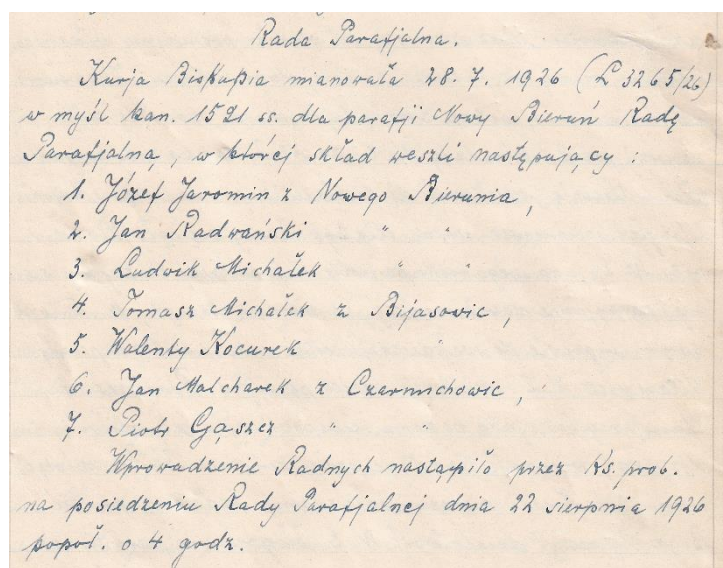 Rada Parafjalna.
Kurja Biskupia mianowała 28. 7. 1926 (L 3265/26)
w myśl kan. 1521 ss. dla parafji Nowy Bieruń Radę
Parafjalną, w której skład weszli następujący :
1. Józef Jaromin z Nowego Bierunia,
2. Jan Radwański " "
3. Ludwik Michałek " "
4. Tomasz Michałek z Bijasowic,
5. Walenty Kocurek "
6. Jan Malcharek z Czarnuchowic,
7. Piotr Gąszcz " "
Wprowadzenie Radnych nastąpiło przez Ks. prob.
na posiedzeniu Rady Parafjalnej dnia 22 sierpnia 1926
popoł. o 4 godz.